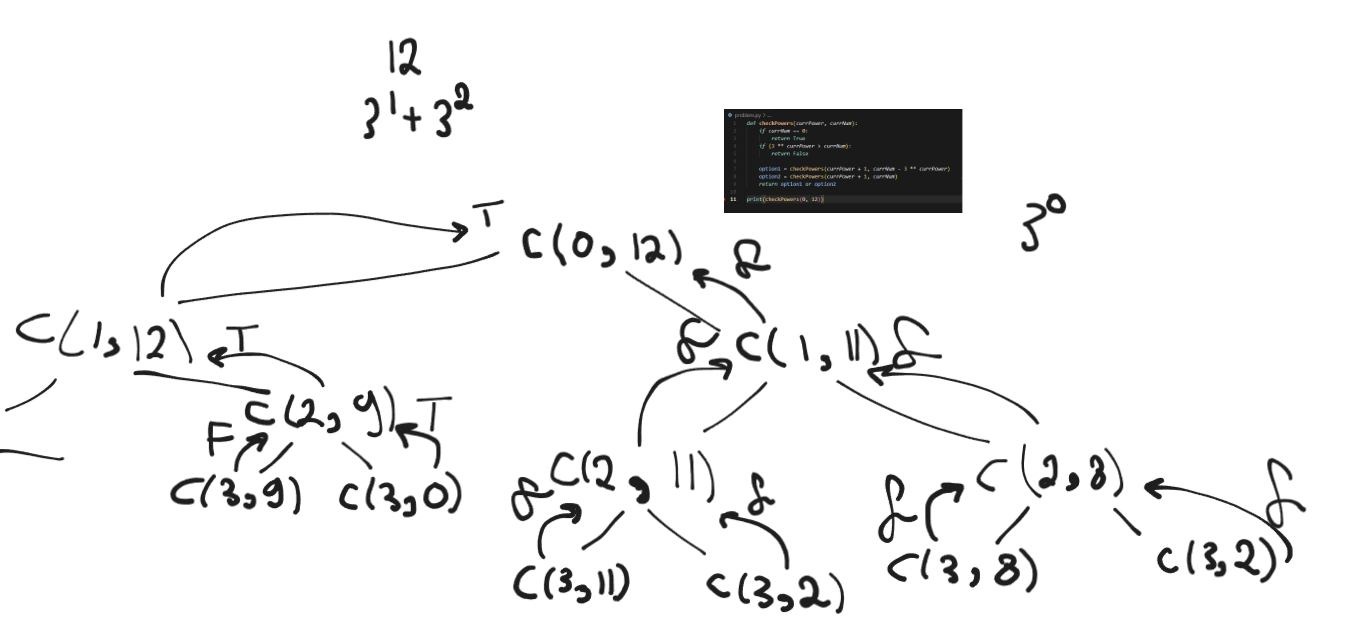 12
3^1 + 3^2
problem.py > ...
1 def checkPowers(currPower, currNum):
2 if currNum == 0:
3 return True
4 if (3 ** currPower > currNum):
5 return False
6
7 option1 = checkPowers(currPower + 1, currNum - 3 ** currPower)
8 option2 = checkPowers(currPower + 1, currNum)
9 return option1 or option2
10
11 print(checkPowers(0, 12))
3^0
T C(0, 12) f
C(1, 12) T f C(1, 11) f
C(2, 9) T
F
C(3, 9) C(3, 0)
C(2, 11) C(2, 8)
f f f f
C(3, 11) C(3, 2) C(3, 8) C(3, 2)